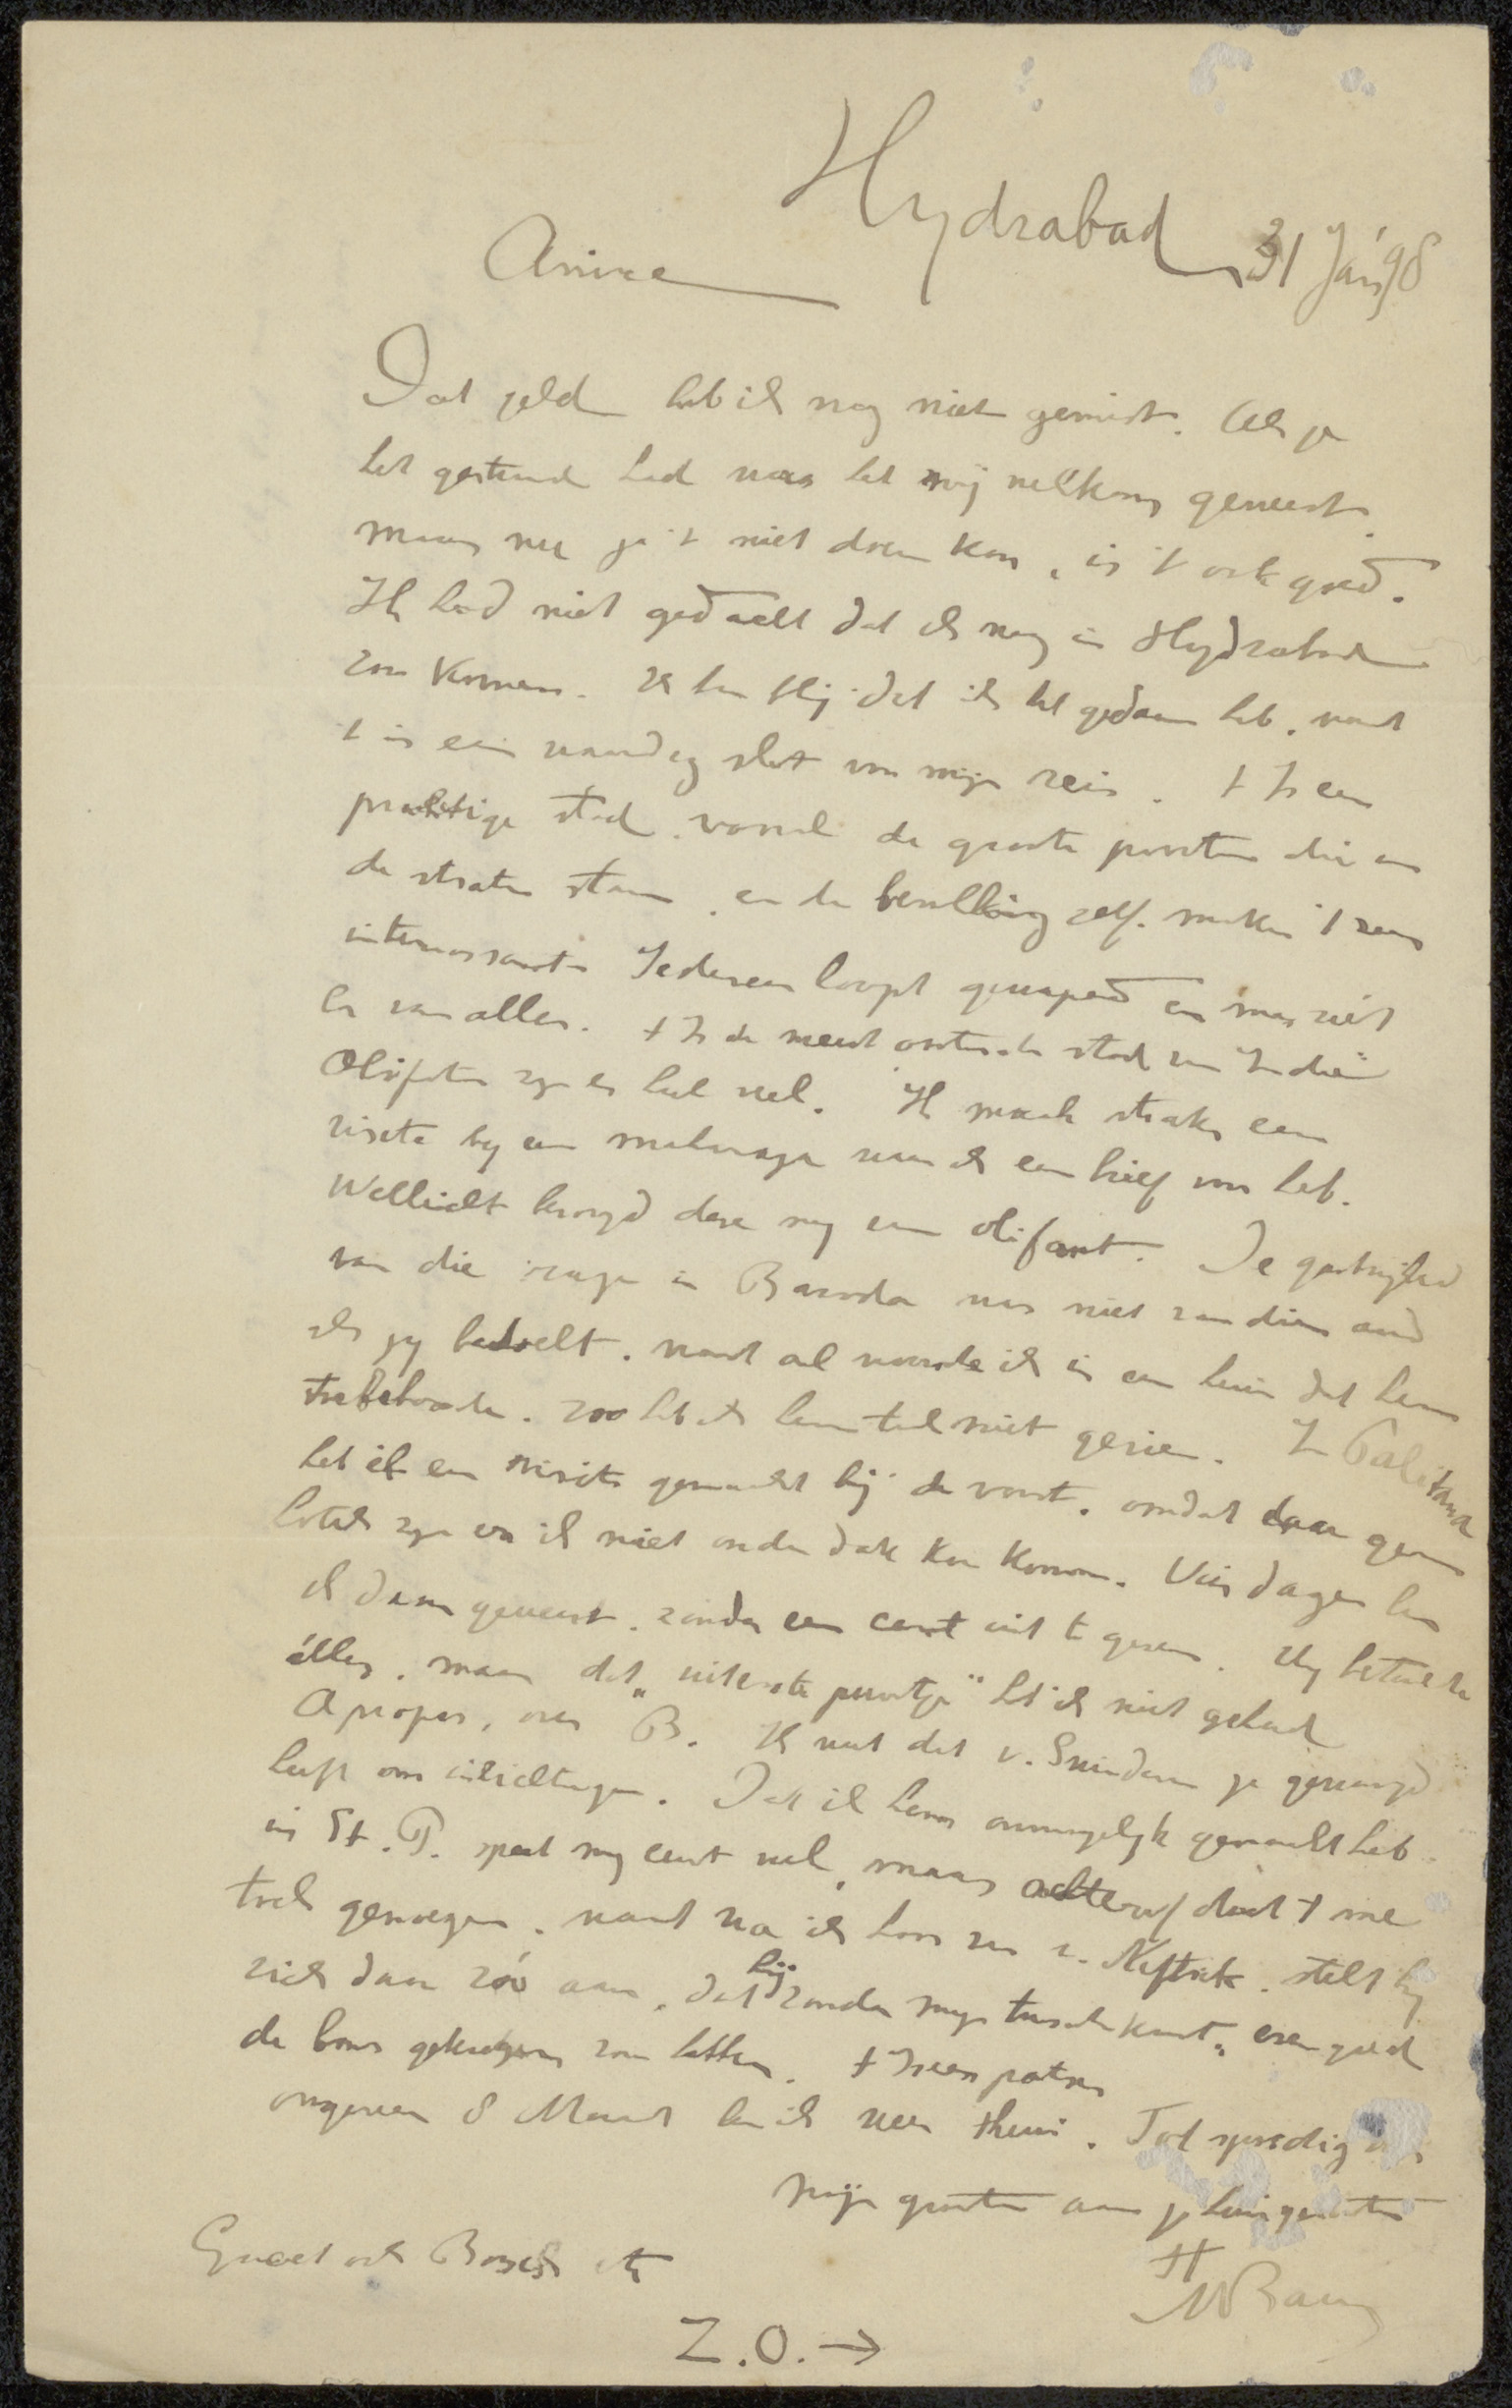 Hydrabad 31 Jan 98
Amice
Dat geld heb ik nog niet gemist. Als je
het gestuurd had was het mij welkom geweest
maar nu je 't niet doen kon, is 't ook goed.
Ik had niet gedacht dat ik nog in Hydrabad
zou komen. Ik ben blij dat ik het gedaan heb, want
't is een waardig slot van mijn reis. t Is een
prachtige stad. vooral de groote poorten die in
de straten staan, en de bevolking zelf. maken 't zeer
interessant. Iedereen loopt gewapend en men ziet
er van alles. t Is de meest oostersche stad van Indië
Olifanten zyn er heel veel. Ik maak straks een
visite by een maharaja waar ik een brief voor heb.
Wellicht bezorgd deze my een olifant. De gastvrijheid
van die raja in Baroda was niet van dien aard
als jy bedoelt. want al woonde ik in een huis dat hem
toebehoorde. zoo heb ik hem toch niet gezien. In Palitana
heb ik een visite gemaakt bij de vorst. omdat daar geen
hotels zyn en ik niet onder dak kon komen. Vier dagen ben
ik daar geweest. zonder een cent uit te geven. Hy betaalde
álles. maar dat „uiterste puntje" heb ik niet gehad
Apropos, over B. Ik weet dat v. Suinderen je gevraagd
heeft om inlichtingen. Dat ik hem onmogelyk gemaakt heb
in St. P. speet my eerst wel, maar achteraf doet t me
toch genoegen. want wa ik hoor van v. Neftrik. stelt hy
zich daar zóó aan, dat hij zonder myn tusschenkomst, even goed
de bons gekregen zou hebben. t Is een patser
ongeveer 8 Maart ben ik weer thuis. Tot spoedig
Mijn groeten aan je huisgenoten
MBauer
Groet ook Bosch etc
Z.O. →